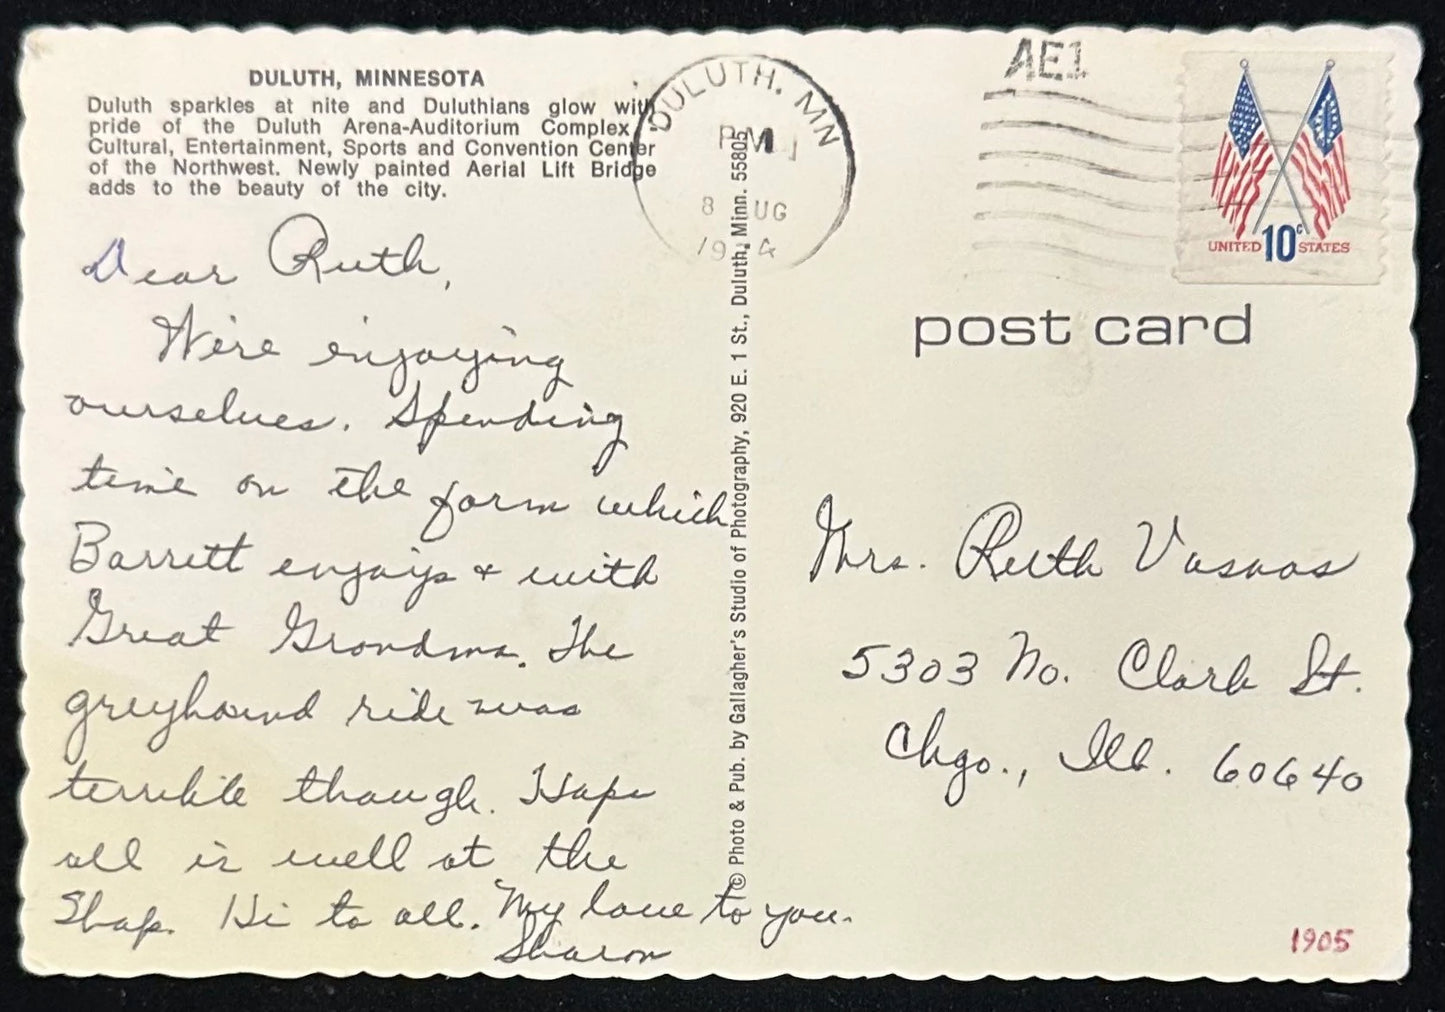 DULUTH, MINNESOTA
Duluth sparkles at nite and Duluthians glow with
pride of the Duluth Arena-Auditorium Complex,
Cultural, Entertainment, Sports and Convention Center
of the Northwest. Newly painted Aerial Lift Bridge
adds to the beauty of the city.
Dear Ruth,
We're enjoying
ourselves. Spending
time on the farm which
Barrett enjoys + with
Great Grandma. The
greyhound ride was
terrible though. Hope
all is well at the
Shop. Hi to all. My love to you.
Sharon
© Photo & Pub. by Gallagher's Studio of Photography, 920 E. 1 St., Duluth, Minn. 55805
DULUTH, MN
PM
8 UG
19 4
AE1
UNITED 10c STATES
post card
Mrs. Ruth
5303 No. Clark St.
Chgo., Ill. 60640
1905